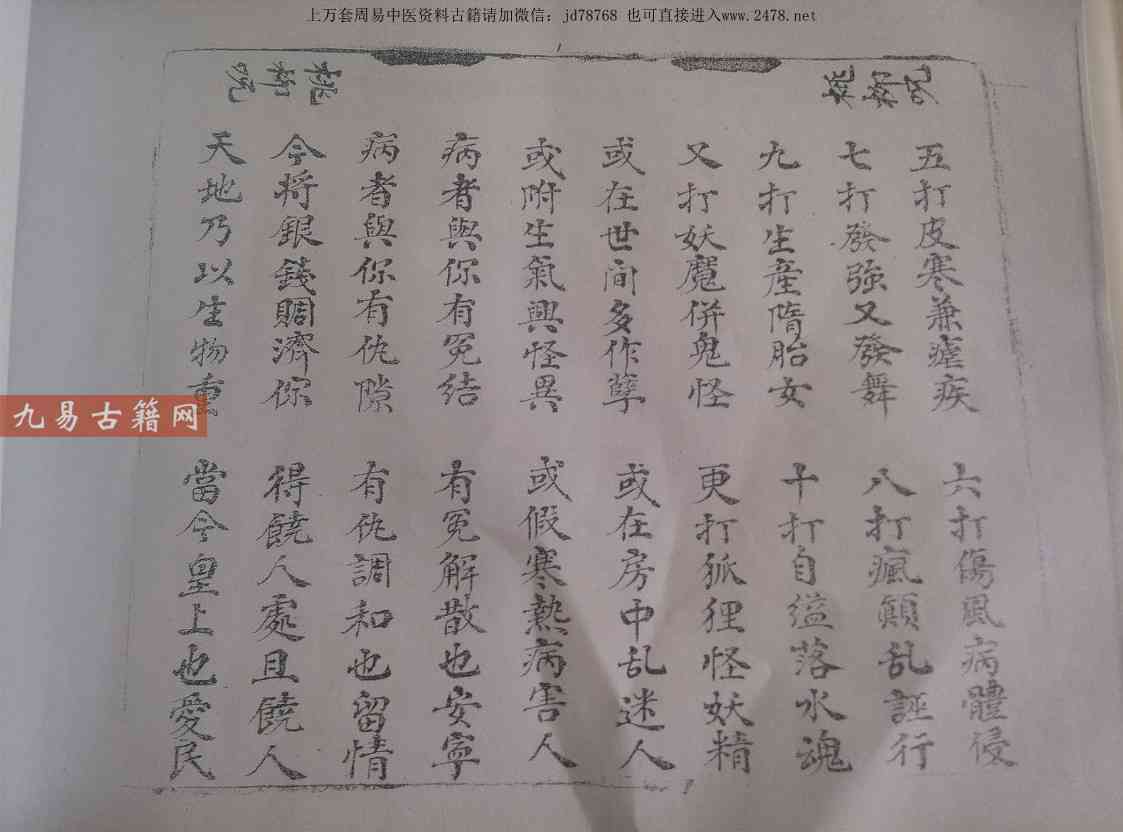 上万套周易中医资料古籍请加微信：jd78768 也可直接进入www.2478.net
桃符咒
桃符咒
五打皮寒兼瘧疾　六打傷風病體侵
七打發強又發舞　八打瘋顛乱誣行
九打生產隋胎女　十打自缢落水魂
又打妖魔併鬼怪　更打狐狸怪妖精
或在世间多作孽　或在房中乱迷人
或附生氣興怪異　或假寒熱病害人
病者與你有冤结　有冤解散也安寧
病者與你有仇隙　有仇調和也留情
今将銀錢賙濟你　得饒人處且饒人
天地乃以生物重　當今皇上也愛民
九易古籍网